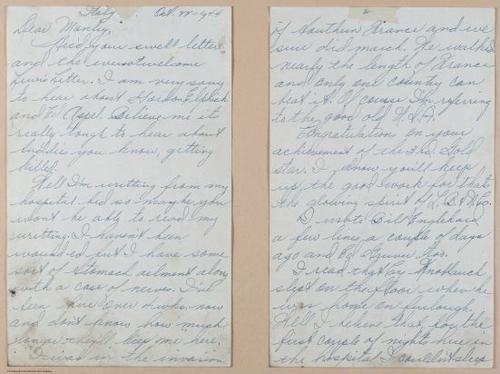 Italy Oct. 22-1944
Dear Manty,
Rec'd your swell letter
and the ever so welcome
newsletter. I am very sorry
to hear about Gordon
and Ed Appel. Believe me it's
really tough to hear about
buddies you know, getting
killed.
Well I'm writting from my
hospital bed so maybe you
wont be able to read my
writting. I haven't been
wounded but I have some
sort of stomach ailment along
with a case of nerves. I've
been here over wks. now
and don't know how much
longer they'll keep me here.
I was in the invasion
2
of Southern France and we
sure did march. We walked
nearly the length of France
and only one country can
beat it. Of course I'm referring
to the good old U.S.A.
Congratulations on your
achievement of the 3rd Gold
star. I know you'll keep
up the good work for that's
the glowing spirit of
I wrote Bill Englehard
a few lines a couple of days
ago and Ed
I read that Ray Knobloch
slept on the floor when he
was home on furlough.
Well I believe that, boy the
first couple of nights here in
the hospital I couldn't sleep